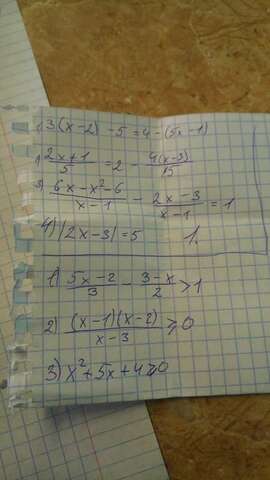 1) 3(x-2) -5 = 4-(5x-1)
2) (2x+1)/5 = 2 - 4(x-3)/15
3) (6x-x²-6)/(x-1) - (2x-3)/(x-1) = 1
4) |2x-3| = 5 1.
1) (5x-2)/3 - (3-x)/2 > 1
2) (x-1)(x-2)/(x-3) ⩾ 0
3) x²+5x+4 ⩾ 0